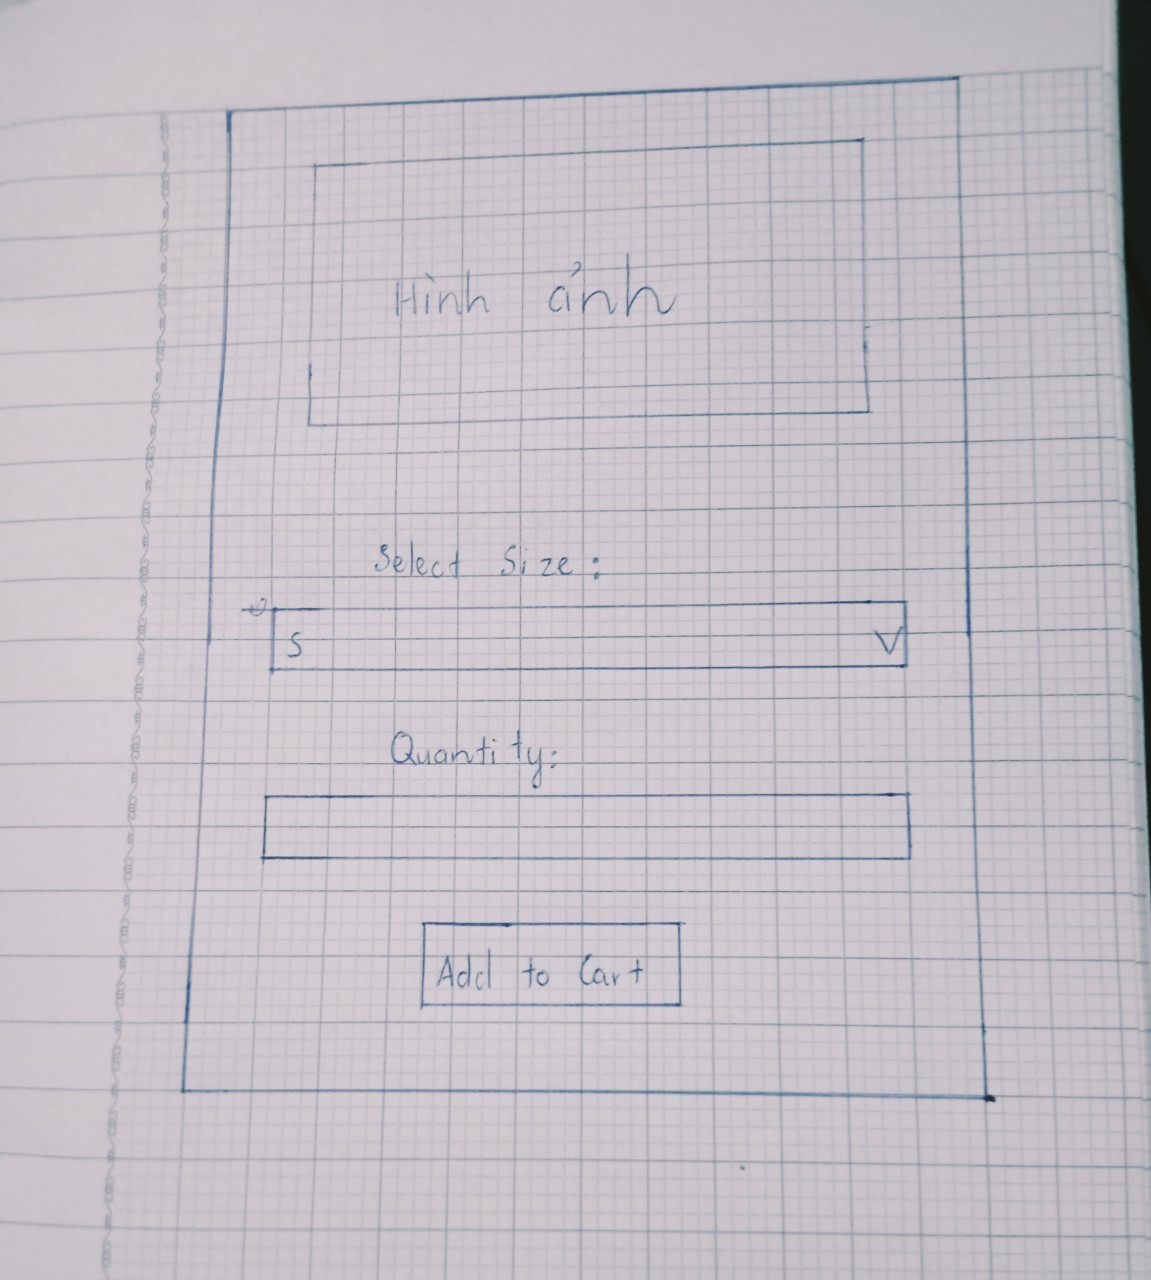 Hình ảnh
Select Size:
S V
Quantity:
Add to Cart